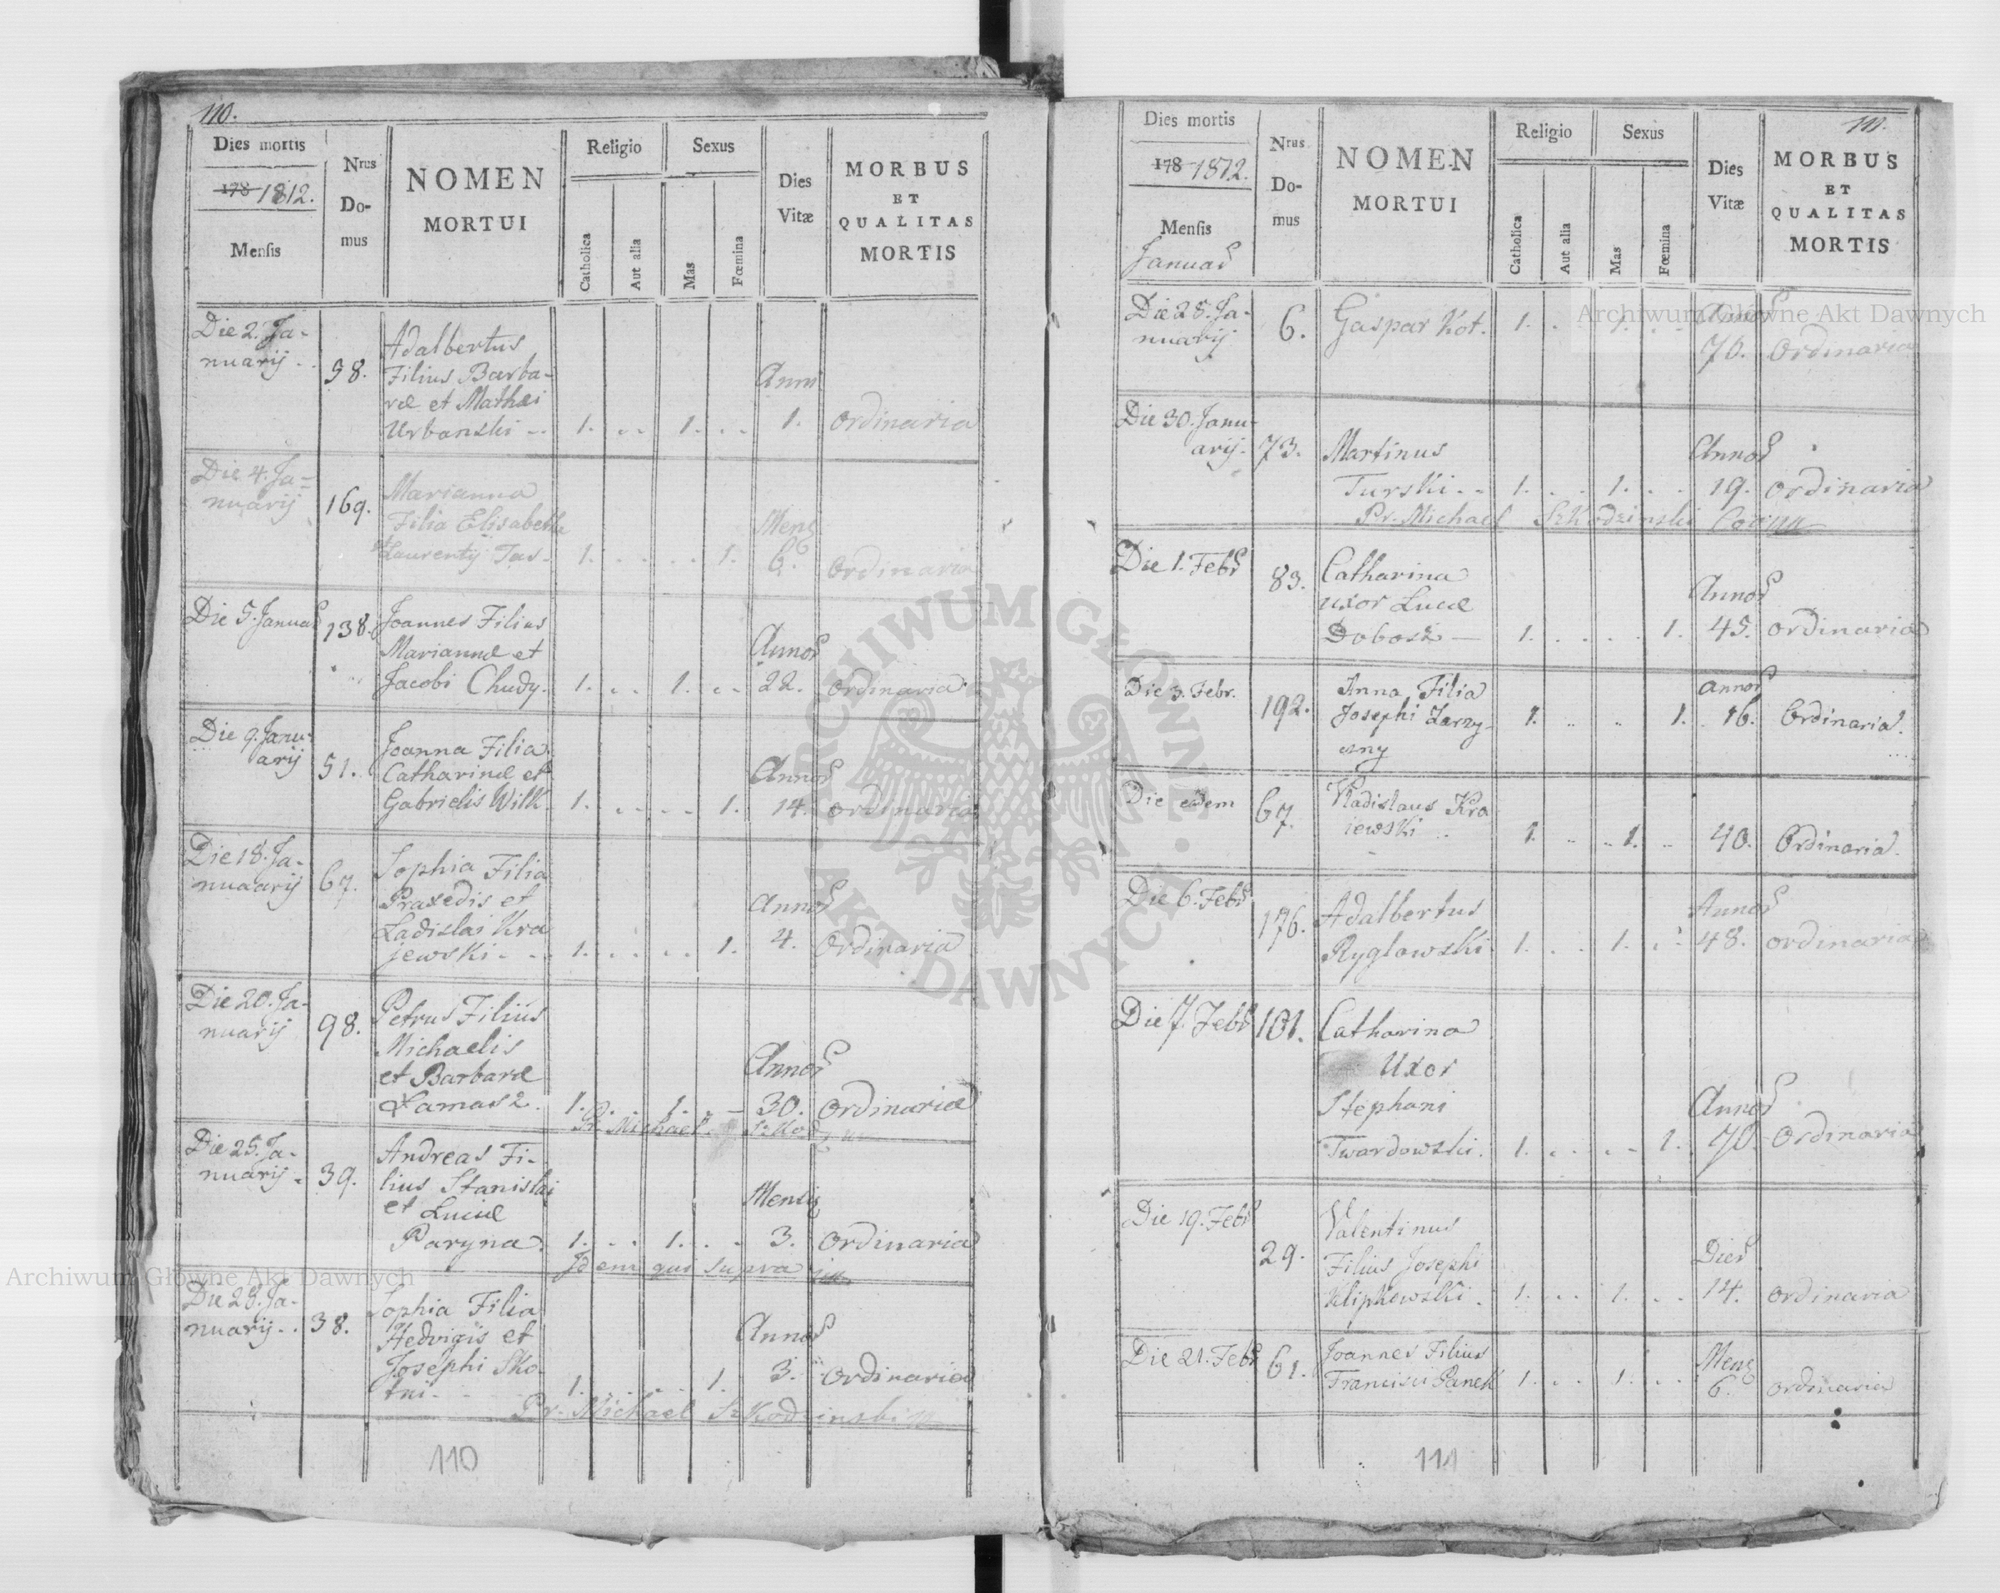 110.
Dies mortis
178 1812.
Mensis
Nrus
Do-
mus
NOMEN
MORTUI
Religio
Catholica
Aut alia
Sexus
Mas
Fœmina
Dies
Vitæ
MORBUS
ET
QUALITAS
MORTIS
Die 2. Ja-
nuarij
98.
Adalbertus
Filius Barba-
ræ et Mathæi
Urbanski
1. 1.
Anni
1.
ordinaria
Die 4. Ja-
nuarij
169.
Marianna
Filia Elisabethæ
et Laurentij Jas-
1. 1.
Mens
6.
ordinaria
Die 5. Januar
138.
Joannes Filius
Mariannæ et
Jacobi Chudy.
1. 1.
Annor
22.
ordinaria
Die 9. Janu-
arij
51.
Joanna Filia
Catharinæ et
Gabrielis Wilk
1. 1.
Annor
14.
ordinaria
Die 18. Ja-
nuarij
67.
Sophia Filia
Praxedis et
Ladislai Kra
jewski
1. 1.
Annor
4.
Ordinaria
Die 20. Ja-
nuarij
98.
Petrus Filius
Michaelis
et Barbaræ
1. 1.
Annor
30.
Ordinaria
Pr. Michael
Die 25. Ja-
nuarij
39.
Andreas Fi-
lius Stanislai
et Luciæ
Paryna
1. 1.
Mensis
3.
ordinaria
Idem qui supra
Die 28. Ja-
nuarij
38.
Sophia Filia
Hedvigis et
Josephi Sko-
tni
1. 1.
Annor
3.
ordinaria
Pr. Michael Szkodzinski
110
111.
Dies mortis
178 1812.
Mensis
Januar
Nrus
Do-
mus
NOMEN
MORTUI
Religio
Catholica
Aut alia
Sexus
Mas
Fœmina
Dies
Vitæ
MORBUS
ET
QUALITAS
MORTIS
Die 28. Ja-
nuarij
6.
Gaspar Kot.
1. 1.
Annor
70.
Ordinaria
Die 30. Janu-
arij.
73.
Martinus
Turski
1. 1.
Annor
19.
ordinaria
Pr. Michael Szkodzinski
Die 1. Febr
83.
Catharina
uxor Lucæ
Dobosz
1. 1.
Annor
45.
ordinaria
Die 3. Febr.
192.
Anna Filia
Josephi Zarzy-
czny
1. 1.
Annor
16.
Ordinaria.
Die edem
67.
Vladislaus Kra
jewski
1. 1.
40.
Ordinaria.
Die 6. Febr
176.
Adalbertus
Ryglowski
1. 1.
Annor
48.
ordinaria
Die 7. Febr
101.
Catharina
Uxor
Stephani
Twardowski.
1. 1.
Annor
70.
Ordinaria
Die 19. Febr
29.
Valentinus
Filius Josephi
1. 1.
Dier
14.
ordinaria
Die 21. Febr
61.
Joannes Filius
Francisci Panek
1. 1.
Mens
6.
ordinaria
111
Archiwum Główne Akt Dawnych
Archiwum Główne Akt Dawnych
ARCHIWUM GŁÓWNE
AKT DAWNYCH